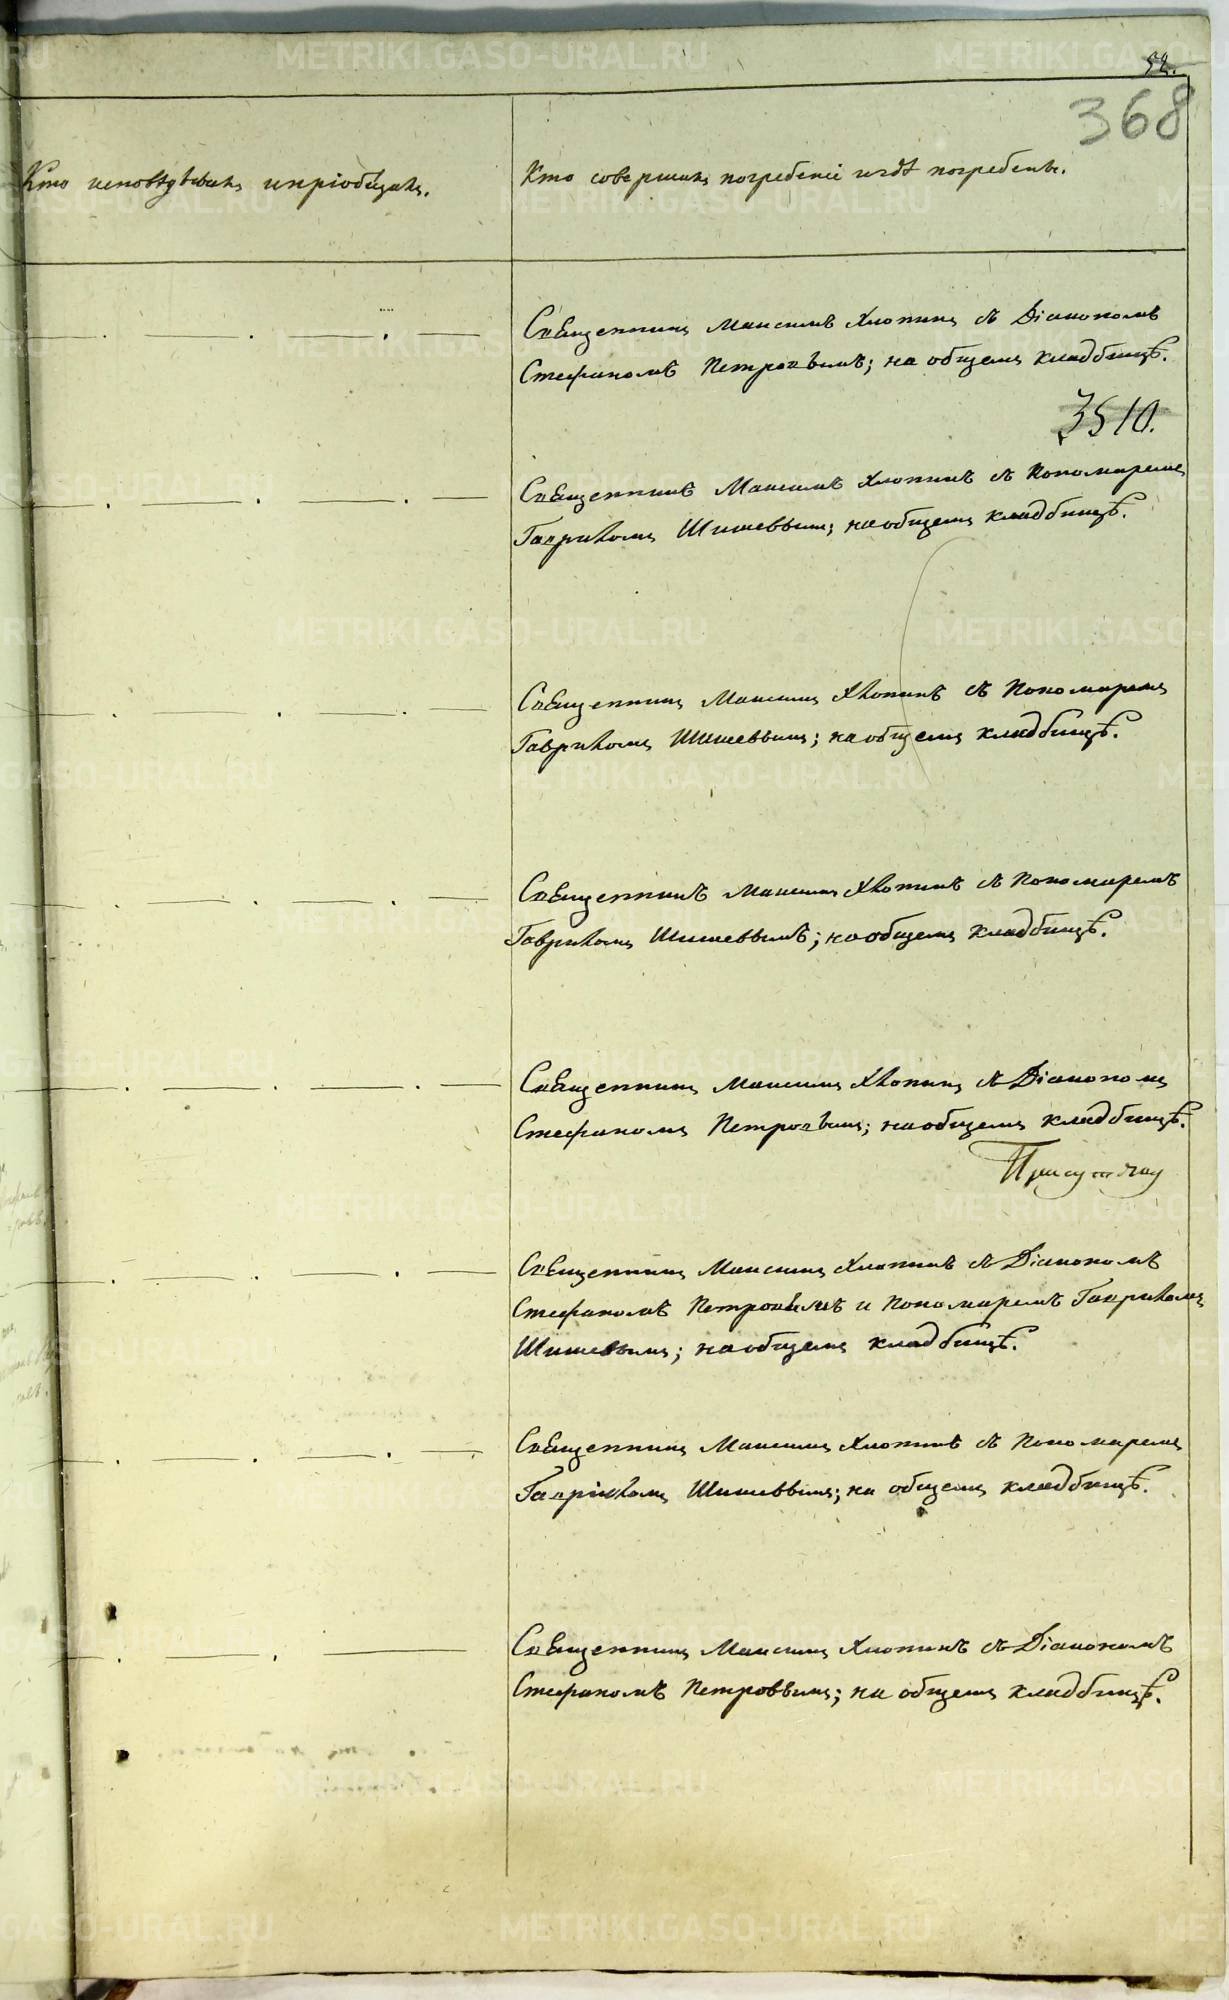 52.
368
Кто исповѣдывалъ и пріобщалъ.
Кто совершалъ погребеніе и гдѣ погребены.
Священникъ Максимъ Хлопинъ съ Діакономъ
Стефаномъ Петровымъ; на общемъ кладбищѣ.
3510.
Священникъ Максимъ Хлопинъ съ Пономаремъ
Гавриломъ Шишевымъ; на общемъ кладбищѣ.
Священникъ Максимъ Хлопинъ съ Пономаремъ
Гавриломъ Шишевымъ; на общемъ кладбищѣ.
Священникъ Максимъ Хлопинъ съ Пономаремъ
Гавриломъ Шишевымъ; на общемъ кладбищѣ.
Священникъ Максимъ Хлопинъ съ Діакономъ
Стефаномъ Петровымъ; на общемъ кладбищѣ.
Священникъ Максимъ Хлопинъ съ Діакономъ
Стефаномъ Петровымъ и Пономаремъ Гавриломъ
Шишевымъ; на общемъ кладбищѣ.
Священникъ Максимъ Хлопинъ съ Пономаремъ
Гавріиломъ Шишевымъ; на общемъ кладбищѣ.
Священникъ Максимъ Хлопинъ съ Діакономъ
Стефаномъ Петровымъ; на общемъ кладбищѣ.
METRIKI.GASO-URAL.RU